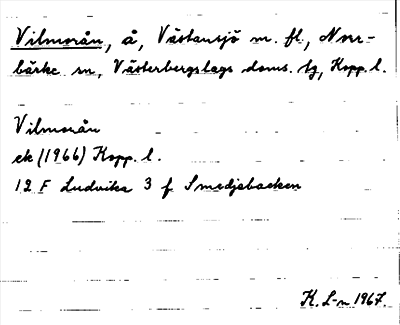 Vilmorån, å, Västansjö m. fl., Norr-
bärke sn, Västerbergslags doms. tg, Kopp. l.
Vilmorån
ek (1966) Kopp. l.
12 F Ludvika 3 f Smedjebacken
K. L-n 1967.